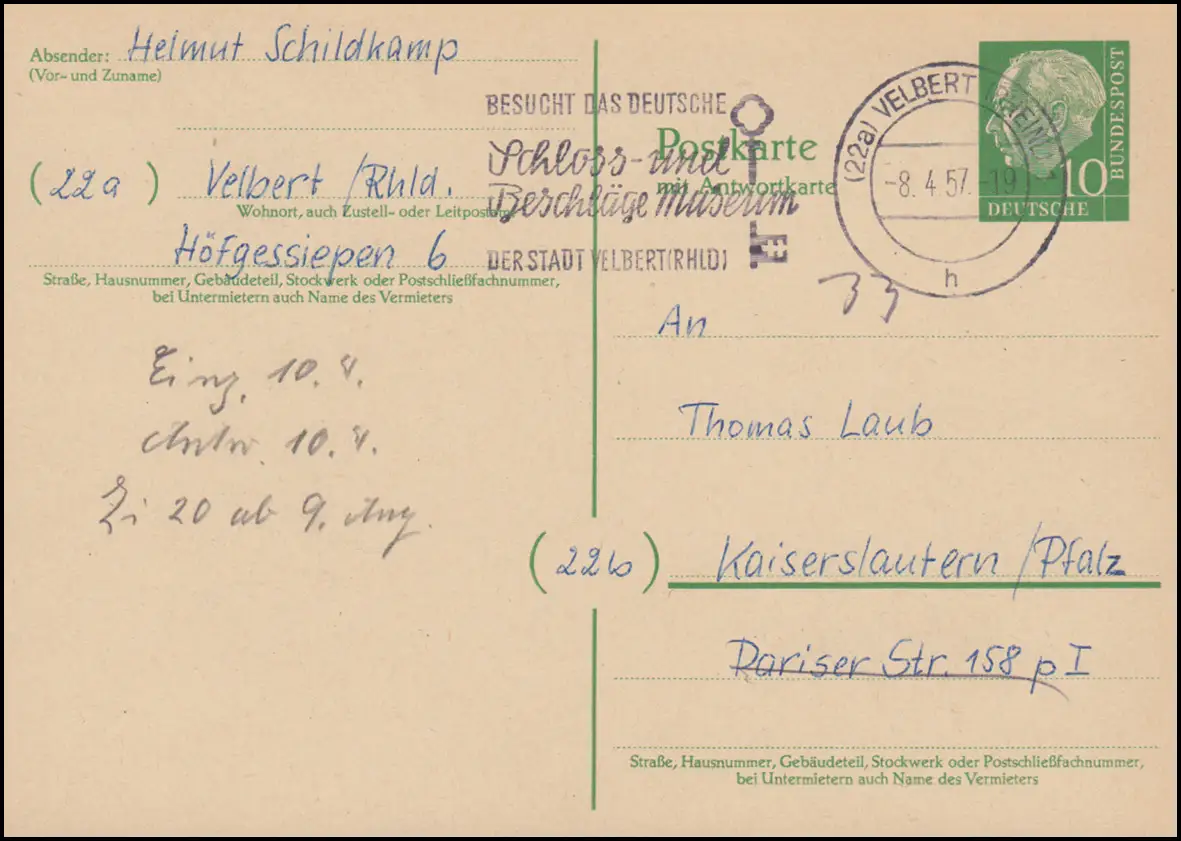 Absender: Helmut Schildkamp
(Vor- und Zuname)
(22a) Velbert /Rhld.
Wohnort, auch Zustell- oder Leitpostamt
Höfgessiepen 6
Straße, Hausnummer, Gebäudeteil, Stockwerk oder Postschließfachnummer,
bei Untermietern auch Name des Vermieters
Eing. 10. 4.
Antw. 10. 4.
Zi 20 ab 9. Aug.
BESUCHT DAS DEUTSCHE
Schloss- und
Beschläge Museum
DER STADT VELBERT (RHLD)
Postkarte
mit Antwortkarte
(22a) VELBERT (RHEINL)
-8. 4. 57. -19
h
10
DEUTSCHE
BUNDESPOST
33
An
Thomas Laub
(22b) Kaiserslautern /Pfalz
Pariser Str. 158 p I
Straße, Hausnummer, Gebäudeteil, Stockwerk oder Postschließfachnummer,
bei Untermietern auch Name des Vermieters